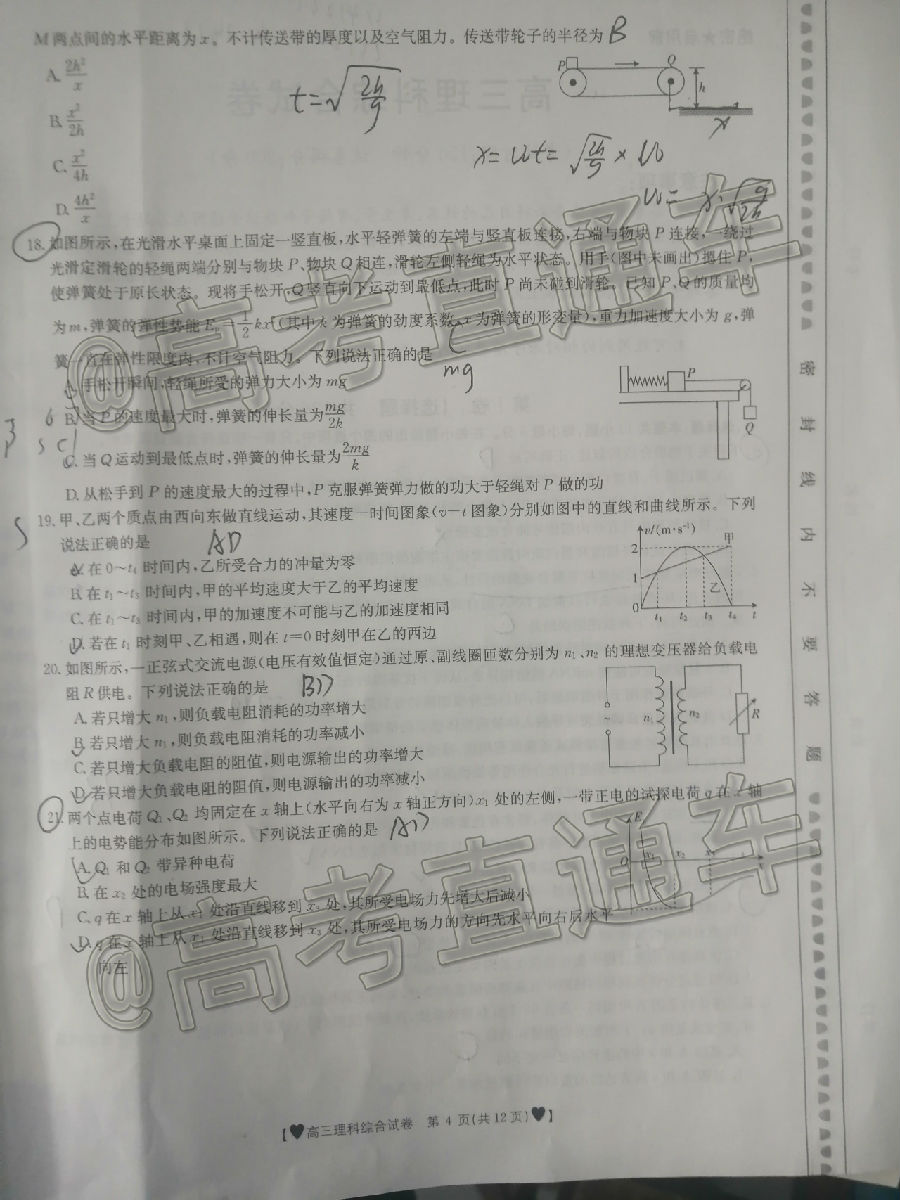 M两点间的水平距离为x。不计传送带的厚度以及空气阻力。传送带轮子的半径为 B
A. 2h²/x
B. x²/2h
C. x²/4h
D. 4h²/x
t=√(2h/g)
P Q h x
x=v₀t=√(2h/g)×v₀
v₀=x·√(g/2h)
18. 如图所示,在光滑水平桌面上固定一竖直板,水平轻弹簧的左端与竖直板连接,右端与物块P连接,一绕过
光滑定滑轮的轻绳两端分别与物块P、物块Q相连,滑轮左侧轻绳为水平状态。用手(图中未画出)摁住P,
使弹簧处于原长状态。现将手松开,Q竖直向下运动到最低点,此时P尚未碰到滑轮。已知P、Q的质量均
为m,弹簧的弹性势能Eₚ=½kx²(其中k为弹簧的劲度系数,x为弹簧的形变量),重力加速度大小为g,弹
簧一直在弹性限度内,不计空气阻力。下列说法正确的是 C
A. 手松开瞬间,轻绳所受的弹力大小为mg
mg
B. 当P的速度最大时,弹簧的伸长量为mg/2k
C. 当Q运动到最低点时,弹簧的伸长量为2mg/k
D. 从松手到P的速度最大的过程中,P克服弹簧弹力做的功大于轻绳对P做的功
P Q
19. 甲、乙两个质点由西向东做直线运动,其速度—时间图象(v-t图象)分别如图中的直线和曲线所示。下列
说法正确的是 AD
A. 在0~t₄时间内,乙所受合力的冲量为零
B. 在t₁~t₃时间内,甲的平均速度大于乙的平均速度
C. 在t₁~t₃时间内,甲的加速度不可能与乙的加速度相同
D. 若在t₁时刻甲、乙相遇,则在t=0时刻甲在乙的西边
v/(m·s⁻¹) 2 1 0 甲 乙 t₁ t₂ t₃ t₄ t
20. 如图所示,一正弦式交流电源(电压有效值恒定)通过原、副线圈匝数分别为n₁、n₂的理想变压器给负载电
阻R供电。下列说法正确的是 BD
A. 若只增大n₁,则负载电阻消耗的功率增大
B. 若只增大n₁,则负载电阻消耗的功率减小
C. 若只增大负载电阻的阻值,则电源输出的功率增大
D. 若只增大负载电阻的阻值,则电源输出的功率减小
n₁ n₂ R
21. 两个点电荷Q₁、Q₂均固定在x轴上(水平向右为x轴正方向)x₁处的左侧,一带正电的试探电荷q在x轴
上的电势能分布如图所示。下列说法正确的是 AD
A. Q₁和Q₂带异种电荷
B. 在x₂处的电场强度最大
C. q在x轴上从x₁处沿直线移到x₃处,其所受电场力先增大后减小
D. q在x轴上从x₁处沿直线移到x₃处,其所受电场力的方向先水平向右后水平
向左
【♥高三理科综合试卷 第4页(共12页)♥】
密封线内不要答题
@高考直通车
@高考直通车